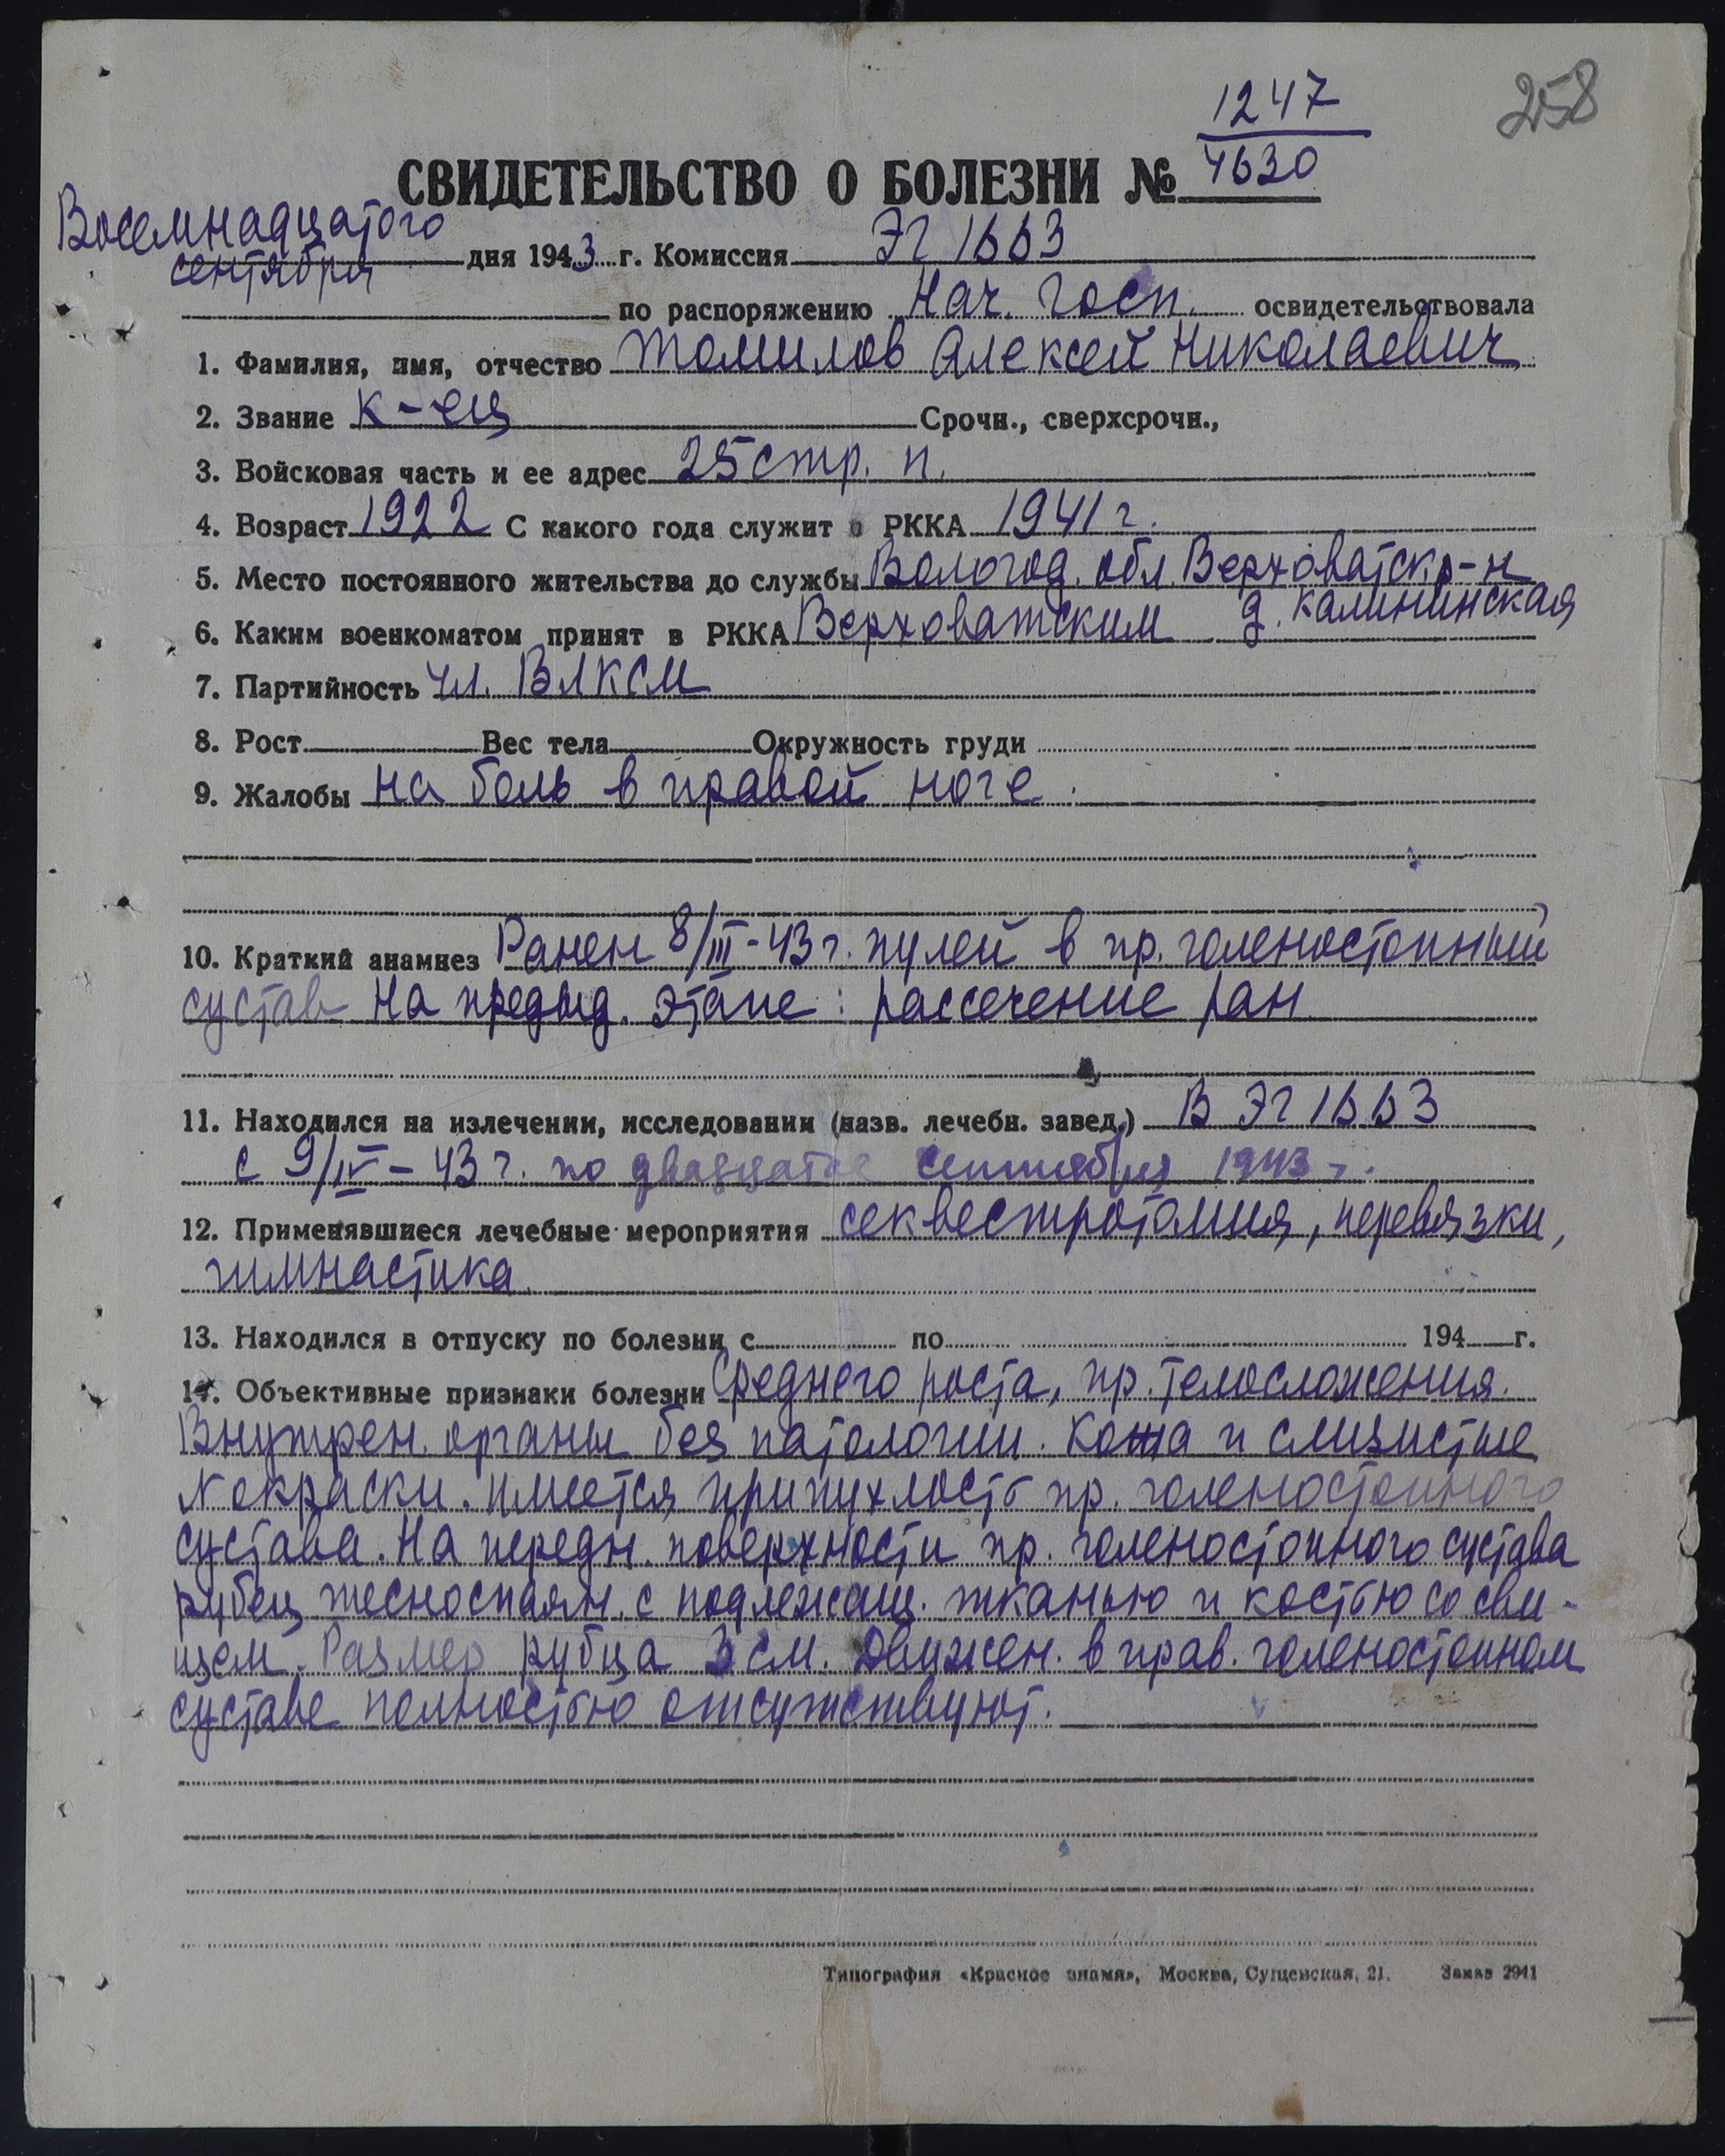 258
1247
4630
СВИДЕТЕЛЬСТВО О БОЛЕЗНИ №
Восемнадцатого
сентября дня 1943 г. Комиссия ЭГ 1663
по распоряжению Нач. Госп. освидетельствовала
1. Фамилия, имя, отчество Томилов Алексей Николаевич
2. Звание к-ец Срочн., сверхсрочн.,
3. Войсковая часть и ее адрес 25 стр. п.
4. Возраст 1922 С какого года служит в РККА 1941 г.
5. Место постоянного жительства до службы Вологод. обл. Верховатск р-н
д. Калининская
6. Каким военкоматом принят в РККА Верховатским
7. Партийность чл. ВЛКСМ
8. Рост Вес тела Окружность груди
9. Жалобы на боль в правой ноге.
10. Краткий анамнез Ранен 8/III-43 г. пулей в пр. голеностопный
сустав На предыд. этапе: рассечение ран
11. Находился на излечении, исследовании (назв. лечебн. завед.) В ЭГ 1663
с 9/IV-43 г. по двадцатое сентября 1943 г.
12. Применявшиеся лечебные мероприятия секвестротомия, перевязки,
гимнастика
13. Находился в отпуску по болезни с по 194 г.
14. Объективные признаки болезни Среднего роста, пр. телосложения.
Внутрен. органы без патологии. Кожа и слизистые
N окраски. Имеется припухлость пр. голеностопного
сустава. На передн. поверхности пр. голеностопного сустава
рубец тесноспаян. с подлежащ. тканью и костью со сви-
щем. Размер рубца 3 см. Движен. в прав. голеностопном
суставе полностью отсутствуют.
Типография «Красное знамя», Москва, Сущевская, 21. Заказ 2941